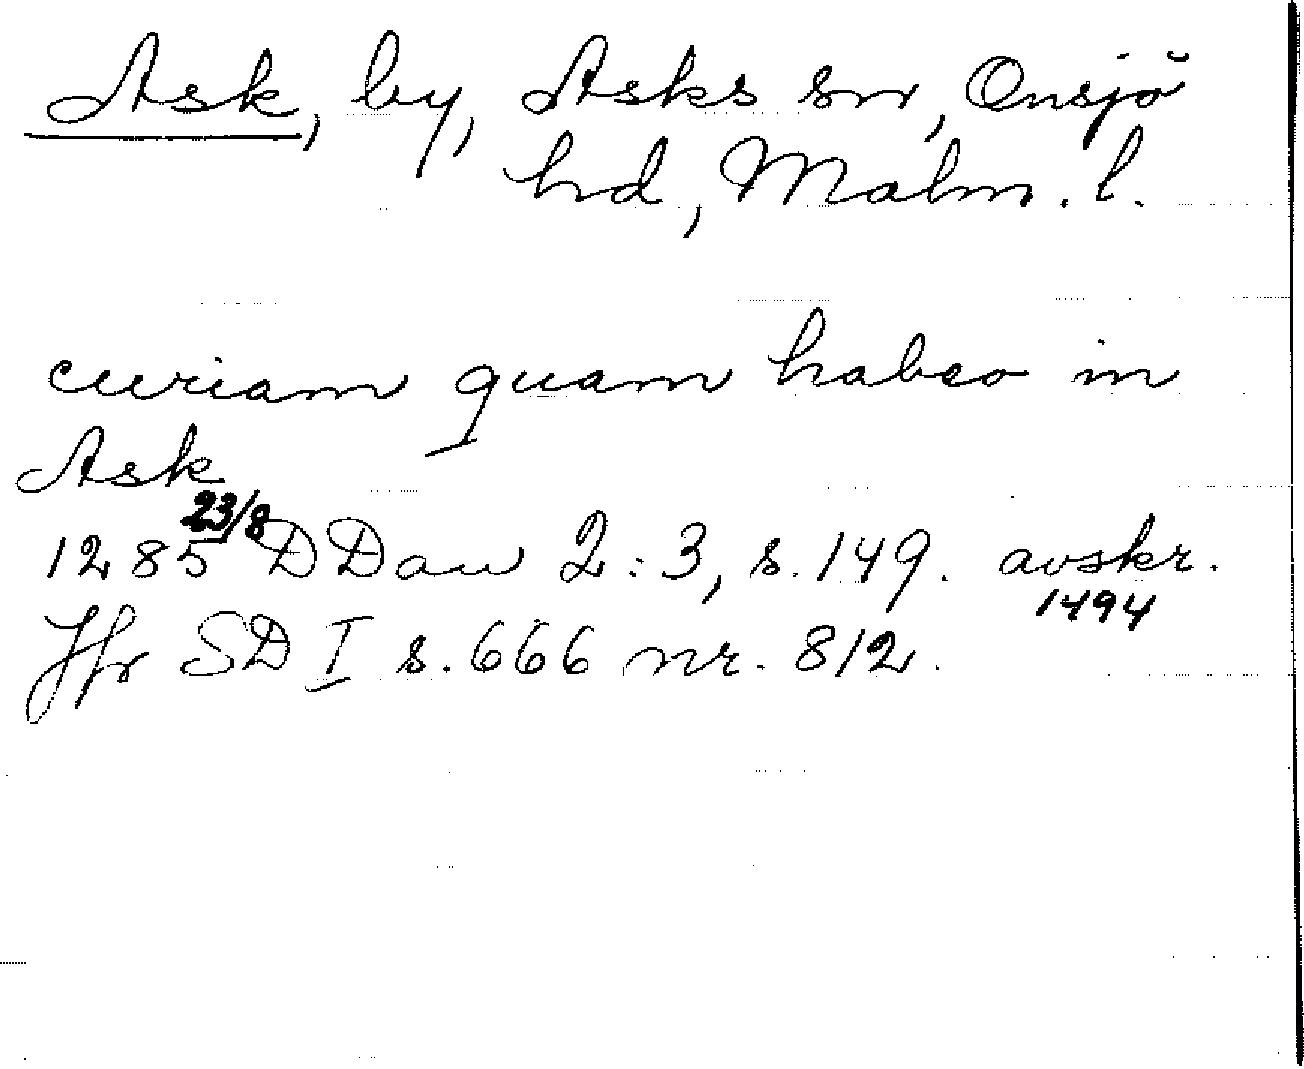 Ask, by, Asks sn, Onsjö
hd, Malm. l.
curiam quam habeo in
Ask
1285 23/8 DDan 2:3, s. 149. avskr.
1494
Jfr SD I s. 666 nr. 812.